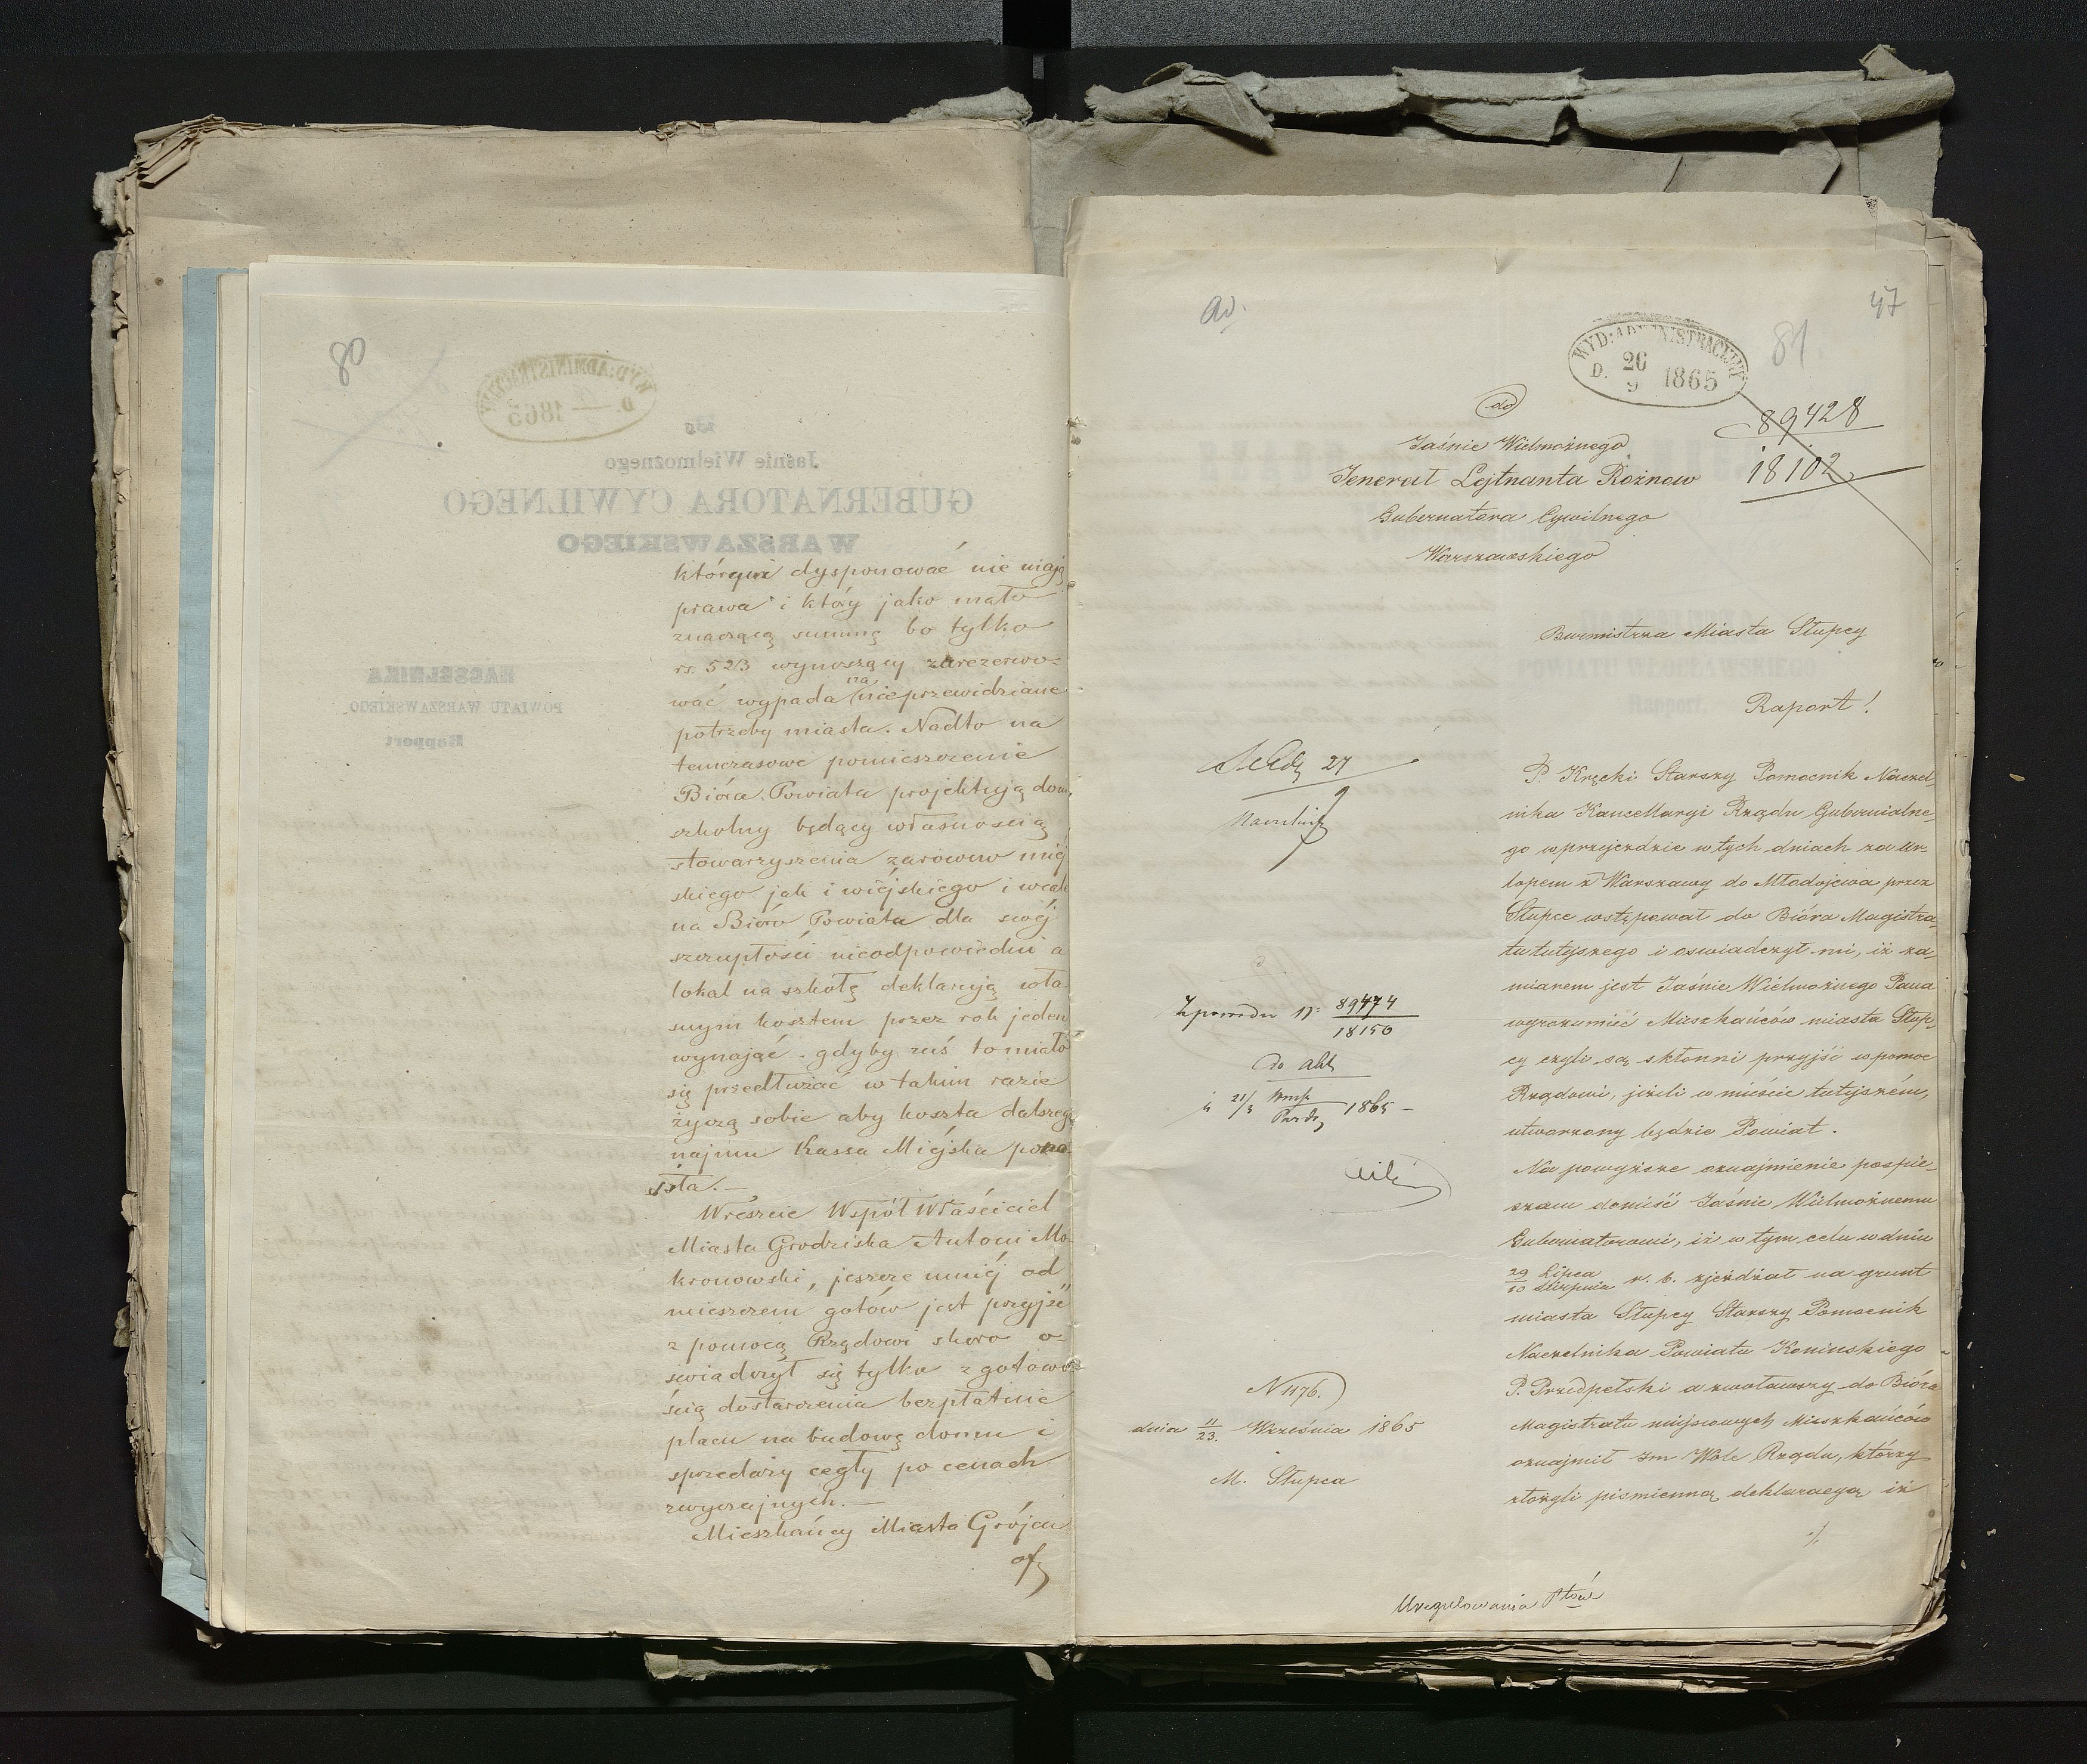 80
którymi dysponować nie mają
prawa i który jako mało
znaczącą summę bo tylko
rs. 523 wynoszący zarezerwo-
wać wypada na nieprzewidziane
potrzeby miasta. Nadto na
temczasowe pomieszczenie
Bióra Powiatu projektują dom
szkolny będący własnością
stowarzyszenia zarówno miej
skiego jak i wiejskiego i wcale
na Bióro Powiatu dla swéj
szczupłości nieodpowiedni a
lokal na szkołę deklarują wła
snym kosztem przez rok jeden
wynająć - gdyby zaś to miało
się przedłużać w takim razie
życzą sobie aby koszta dalszego
najmu Kassa Miéjska pono-
siła. —
Wreszcie Wspól Właściciel
Miasta Grodziska Antoni Mo-
kronowski, jeszcze mniéj od
mieszczan gotów jest przyjść
z pomocą Rządowi skoro o-
świadczył się tylko z gotowo-
ścią dostarczenia bezpłatnie
placu na budowę domu i
sprzedaży cegły po cenach
zwyczajnych. —
Mieszkańcy Miasta Grójca
47
81
WYD: ADMINISTRACYJNY
D. 26/9 1865
89428
18102
do
Jaśnie Wielmożnego
Jenerał Lejtnanta Rożnow
Gubernatora Cywilnego
Warszawskiego
Burmistrza Miasta Słupcy
Raport!
P. Kręcki Starszy Pomocnik Naczel-
nika Kancellaryi Rządu Gubernialne-
go w przyjeździe w tych dniach za ur-
lopem z Warszawy do Młodojewa przez
Słupce wstępował do Bióra Magistra-
tu tutejszego i oswiadczył mi, iż za-
miarem jest Jaśnie Wielmożnego Pana
wyrozumieć Mieszkańców miasta Słup-
cy czyli są skłonni przyjść w pomoc
Rządowi, jeżeli w mieście tutejszém,
utworzony będzie Powiat.
Na powyższe oznajmienie pospie-
szam donieść Jaśnie Wielmożnemu
Gubernatorowi, iż w tym celu w dniu
29/10 Lipca/Sierpnia r. b. zjeżdżał na grunt
miasta Słupcy Starszy Pomocnik
Naczelnika Powiatu Konińskiego
P. Przedpełski a zwoławszy do Bióra
Magistratu miejscowych Mieszkańców
oznajmił im Wole Rządu, którzy
złożyli pismienną deklaracyą iż
./.
27
Z powodu N: 89474
18150
do akt
1865
N 1176.
dnia 11/23. Września 1865
M. Słupca
Uregulowania